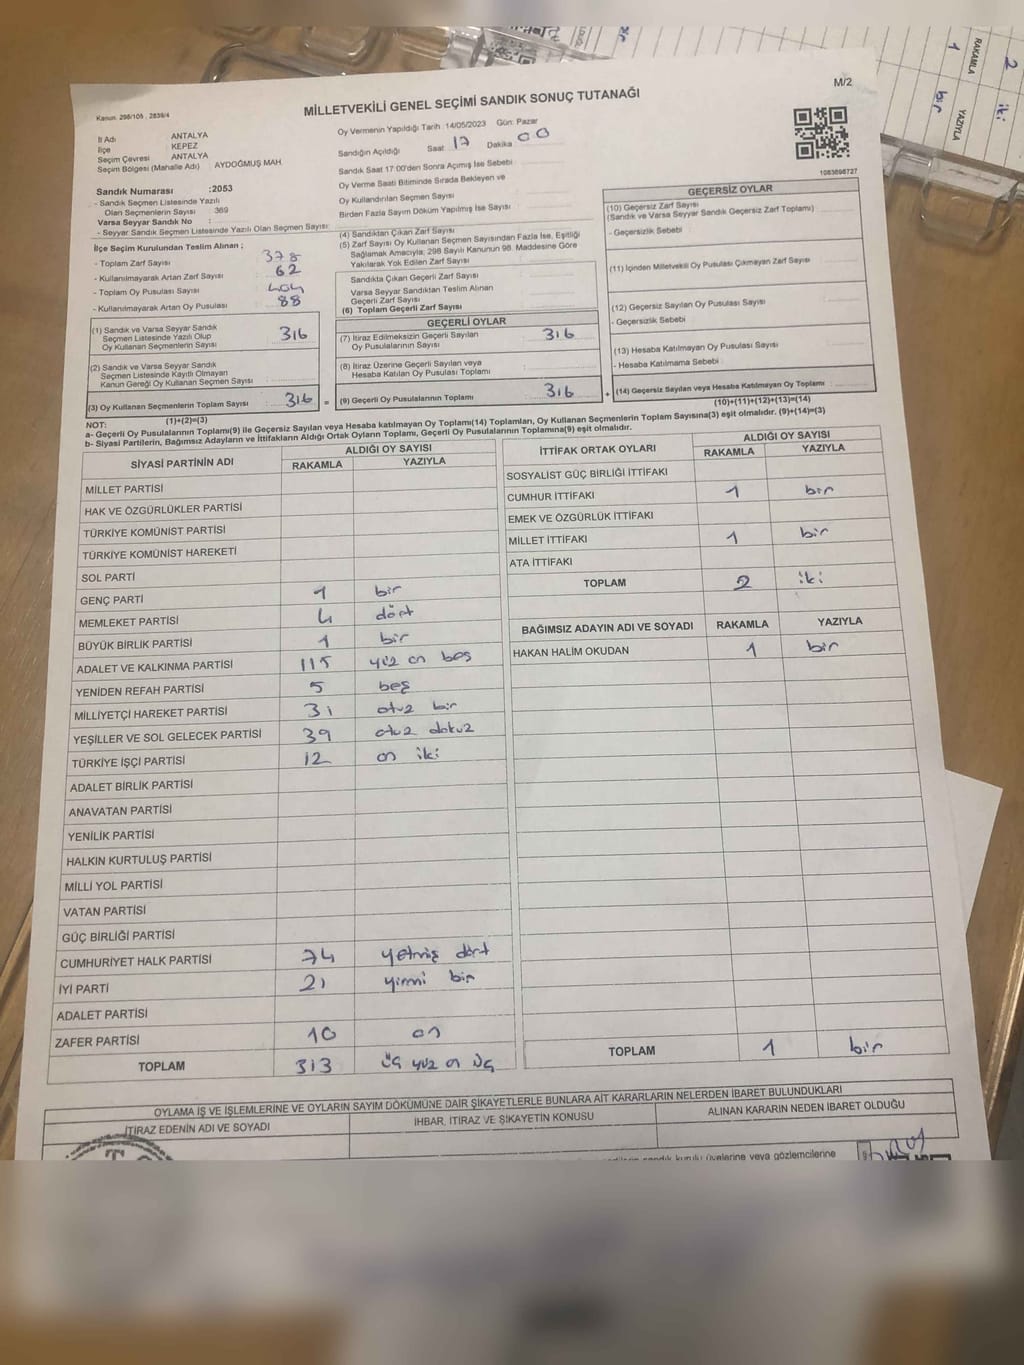 M/2
Kanun. 298/105 , 2839/4
MİLLETVEKİLİ GENEL SEÇİMİ SANDIK SONUÇ TUTANAĞI
İl Adı ANTALYA
İlçe KEPEZ
Seçim Çevresi ANTALYA
Seçim Bölgesi (Mahalle Adı) AYDOĞMUŞ MAH.
Sandık Numarası :2053
- Sandık Seçmen Listesinde Yazılı
Olan Seçmenlerin Sayısı 369
Varsa Seyyar Sandık No :
- Seyyar Sandık Seçmen Listesinde Yazılı Olan Seçmen Sayısı:
İlçe Seçim Kurulundan Teslim Alınan ;
- Toplam Zarf Sayısı : 378
- Kullanılmayarak Artan Zarf Sayısı : 62
- Toplam Oy Pusulası Sayısı : 404
- Kullanılmayarak Artan Oy Pusulası : 88
(1) Sandık ve Varsa Seyyar Sandık
Seçmen Listesinde Yazılı Olup
Oy Kullanan Seçmenlerin Sayısı : 316
(2) Sandık ve Varsa Seyyar Sandık
Seçmen Listesinde Kayıtlı Olmayan
Kanun Gereği Oy Kullanan Seçmen Sayısı :
(3) Oy Kullanan Seçmenlerin Toplam Sayısı : 316 =
(1)+(2)=(3)
Oy Vermenin Yapıldığı Tarih :14/05/2023 Gün: Pazar
Sandığın Açıldığı Saat 17 Dakika 00
Sandık Saat 17:00'den Sonra Açılmış İse Sebebi :
Oy Verme Saati Bitiminde Sırada Bekleyen ve
Oy Kullandırılan Seçmen Sayısı :
Birden Fazla Sayım Döküm Yapılmış İse Sayısı :
(4) Sandıktan Çıkan Zarf Sayısı :
(5) Zarf Sayısı Oy Kullanan Seçmen Sayısından Fazla İse, Eşitliği
Sağlamak Amacıyla; 298 Sayılı Kanunun 98. Maddesine Göre
Yakılarak Yok Edilen Zarf Sayısı :
Sandıkta Çıkan Geçerli Zarf Sayısı :
Varsa Seyyar Sandıktan Teslim Alınan
Geçerli Zarf Sayısı :
(6) Toplam Geçerli Zarf Sayısı :
GEÇERLİ OYLAR
(7) İtiraz Edilmeksizin Geçerli Sayılan
Oy Pusulalarının Sayısı : 316
(8) İtiraz Üzerine Geçerli Sayılan veya
Hesaba Katılan Oy Pusulası Toplamı :
(9) Geçerli Oy Pusulalarının Toplamı : 316 +
1083898727
GEÇERSİZ OYLAR
(10) Geçersiz Zarf Sayısı
(Sandık ve Varsa Seyyar Sandık Geçersiz Zarf Toplamı) :
- Geçersizlik Sebebi :
(11) İçinden Milletvekili Oy Pusulası Çıkmayan Zarf Sayısı :
(12) Geçersiz Sayılan Oy Pusulası Sayısı :
- Geçersizlik Sebebi :
(13) Hesaba Katılmayan Oy Pusulası Sayısı :
- Hesaba Katılmama Sebebi :
(14) Geçersiz Sayılan veya Hesaba Katılmayan Oy Toplamı :
(10)+(11)+(12)+(13)=(14)
NOT:
a- Geçerli Oy Pusulalarının Toplamı(9) ile Geçersiz Sayılan veya Hesaba katılmayan Oy Toplamı(14) Toplamları, Oy Kullanan Seçmenlerin Toplam Sayısına(3) eşit olmalıdır. (9)+(14)=(3)
b- Siyasi Partilerin, Bağımsız Adayların ve İttifakların Aldığı Ortak Oyların Toplamı, Geçerli Oy Pusulalarının Toplamına(9) eşit olmalıdır.
SİYASİ PARTİNİN ADI ALDIĞI OY SAYISI
RAKAMLA YAZIYLA
MİLLET PARTİSİ
HAK VE ÖZGÜRLÜKLER PARTİSİ
TÜRKİYE KOMÜNİST PARTİSİ
TÜRKİYE KOMÜNİST HAREKETİ
SOL PARTİ
GENÇ PARTİ 1 bir
MEMLEKET PARTİSİ 4 dört
BÜYÜK BİRLİK PARTİSİ 1 bir
ADALET VE KALKINMA PARTİSİ 115 yüz on beş
YENİDEN REFAH PARTİSİ 5 beş
MİLLİYETÇİ HAREKET PARTİSİ 31 otuz bir
YEŞİLLER VE SOL GELECEK PARTİSİ 39 otuz dokuz
TÜRKİYE İŞÇİ PARTİSİ 12 on iki
ADALET BİRLİK PARTİSİ
ANAVATAN PARTİSİ
YENİLİK PARTİSİ
HALKIN KURTULUŞ PARTİSİ
MİLLİ YOL PARTİSİ
VATAN PARTİSİ
GÜÇ BİRLİĞİ PARTİSİ
CUMHURİYET HALK PARTİSİ 74 yetmiş dört
İYİ PARTİ 21 yirmi bir
ADALET PARTİSİ
ZAFER PARTİSİ 10 on
TOPLAM 313 üç yüz on üç
İTTİFAK ORTAK OYLARI ALDIĞI OY SAYISI
RAKAMLA YAZIYLA
SOSYALİST GÜÇ BİRLİĞİ İTTİFAKI
CUMHUR İTTİFAKI 1 bir
EMEK VE ÖZGÜRLÜK İTTİFAKI
MİLLET İTTİFAKI 1 bir
ATA İTTİFAKI
TOPLAM 2 iki
BAĞIMSIZ ADAYIN ADI VE SOYADI RAKAMLA YAZIYLA
HAKAN HALİM OKUDAN 1 bir
TOPLAM 1 bir
OYLAMA İŞ VE İŞLEMLERİNE VE OYLARIN SAYIM DÖKÜMÜNE DAİR ŞİKAYETLERLE BUNLARA AİT KARARLARIN NELERDEN İBARET BULUNDUKLARI
İTİRAZ EDENİN ADI VE SOYADI İHBAR, İTİRAZ VE ŞİKAYETİN KONUSU ALINAN KARARIN NEDEN İBARET OLDUĞU
sandık kurulu üyelerine veya gözlemcilerine
RAKAMLA YAZIYLA
2 iki
1 bir